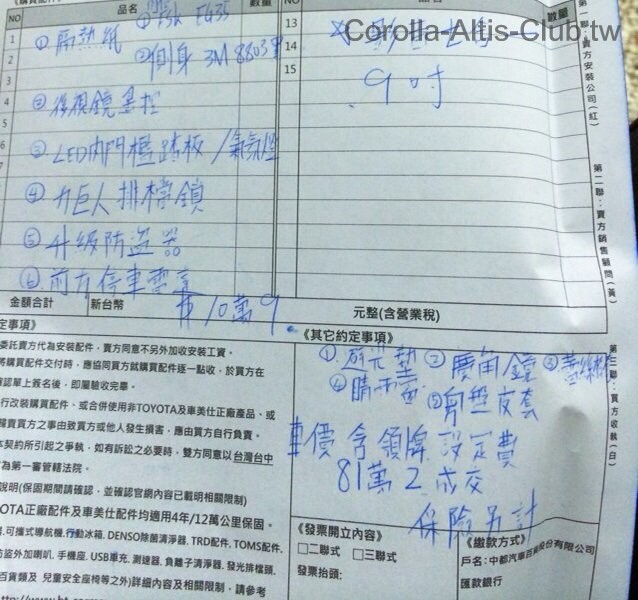 品名
數量
NO
數量
Corolla-Altis-Club.tw
1
① 隔熱紙
13
2
② 側身 3M 8803
14
3
15
9吋
4
② 後視鏡
③ LED內門檻踏板／氣氛燈
④ 力巨人排檔鎖
⑤ 升級防盜器
⑥ 前方停車雷達
金額合計
新台幣
$10萬9.
元整(含營業稅)
定事項》
《其它約定事項》
委託賣方代為安裝配件，賣方同意不另外加收安裝工資。
將購買配件交付時，應協同買方就購買配件逐一點收，於買方在
確認單上簽名後，即屬驗收完畢。
行改裝購買配件、或合併使用非TOYOTA及車美仕正廠產品、或
賣方之事由致買方或他人發生損害，應由買方自行負責。
契約所引起之爭執，如有訴訟之必要時，雙方同意以台灣台中
為第一審管轄法院。
① 避光墊 ② 廣角鏡
④ 晴雨窗 ⑤ 方向盤皮套
車價含領牌設定費
81萬2成交
保險另計
說明(保固期間請確認，並確認官網內容已載明相關限制)
OTA正廠配件及車美仕配件均適用4年/12萬公里保固。
可攜式導航機、行動冰箱、DENSO除菌清淨器、TRD配件、TOMS配件、
防盜外加喇叭、手機座、USB車充、測速器、負離子清淨器、發光排檔頭、
百貨類及 兒童安全座椅等之外)詳細內容及相關限制，請參考
《發票開立內容》
□二聯式 □三聯式
發票抬頭:
《繳款方式》
戶名:中部汽車百貨股份有限公司
匯款銀行
第一聯：賣方安裝公司(紅)
第二聯：賣方銷售顧問(黃)
第三聯：買方收執(白)